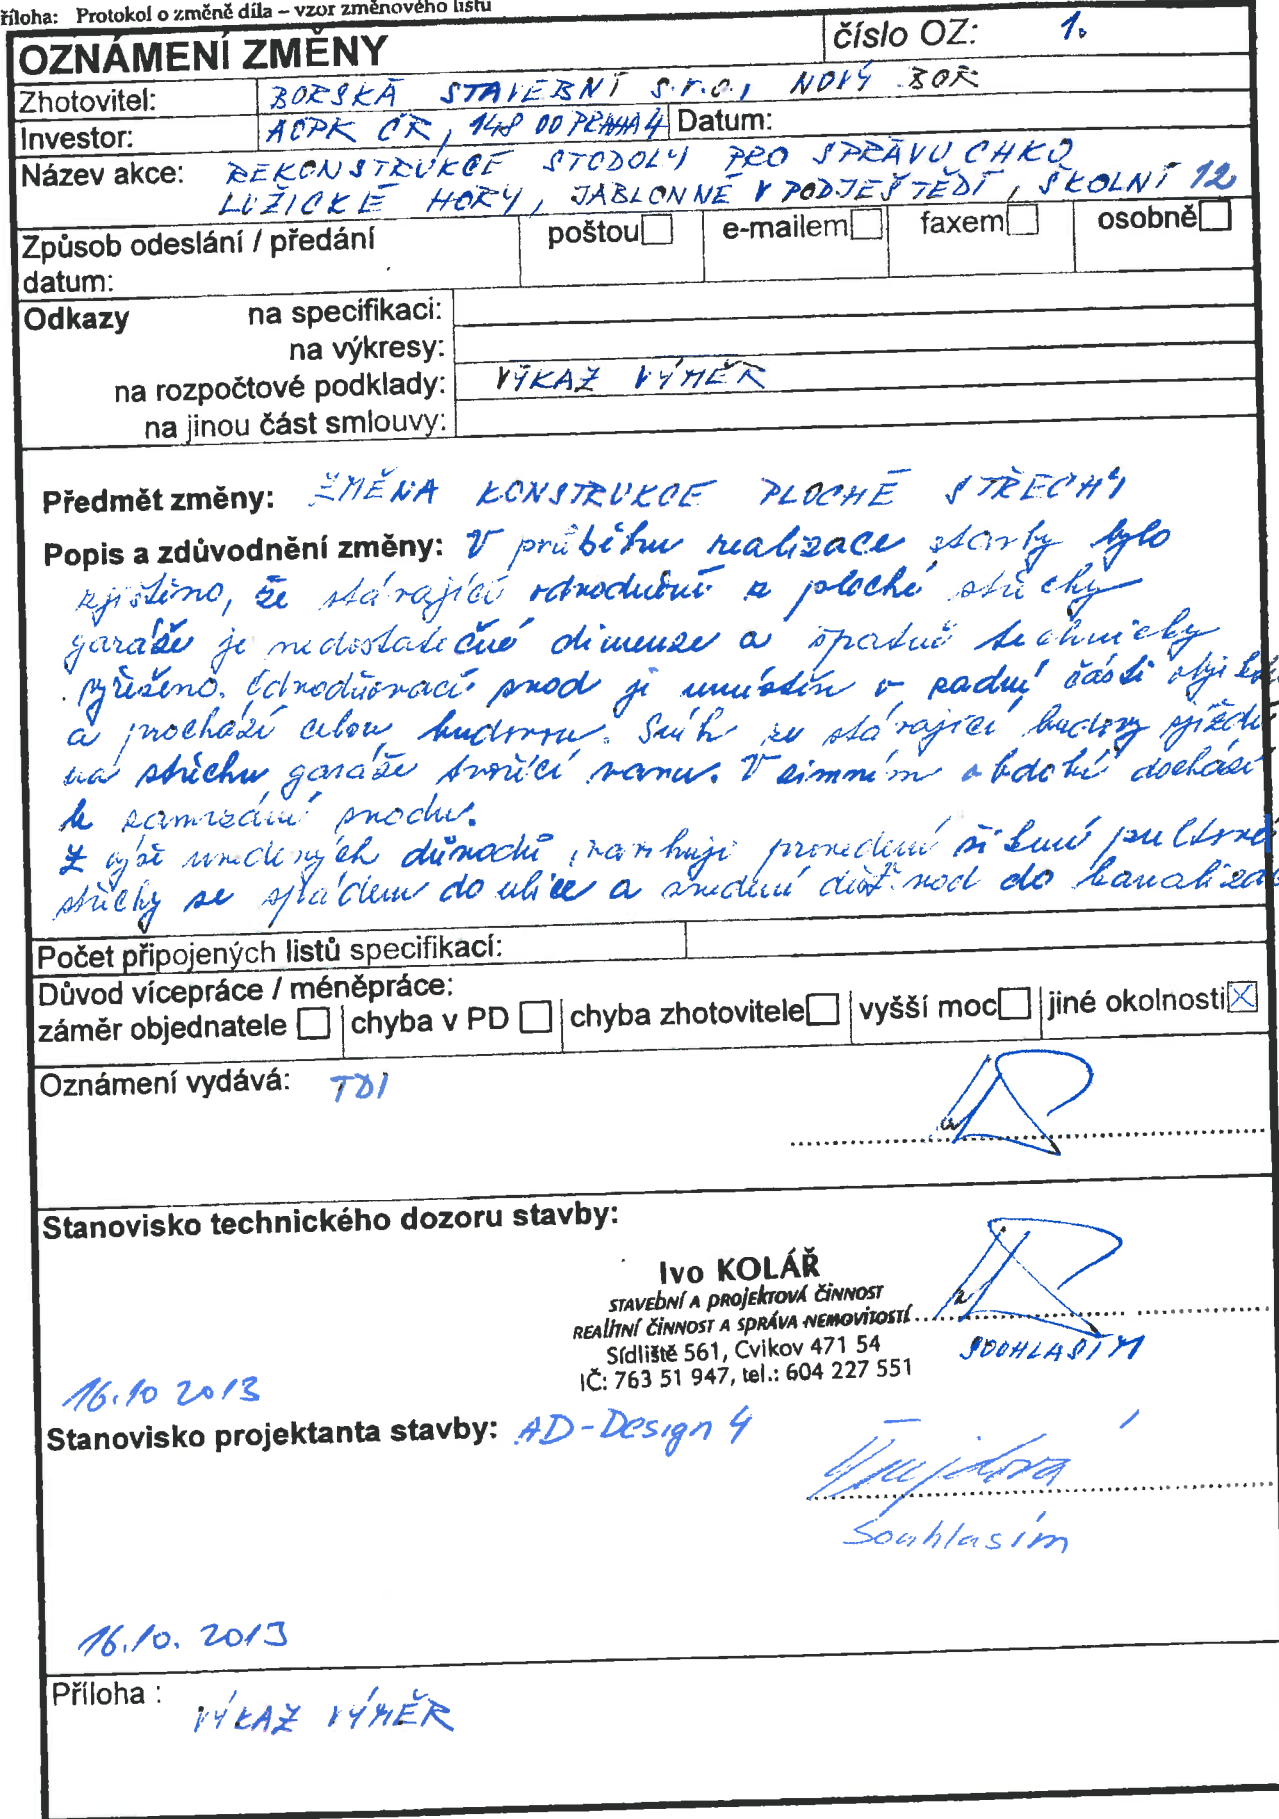 říloha: Protokol o změně díla – vzor změnového listu
OZNÁMENÍ ZMĚNY číslo OZ: 1.
Zhotovitel: BORSKÁ STAVEBNÍ s.r.o., NOVÝ BOR
Investor: AOPK ČR, 148 00 PRAHA 4 Datum:
Název akce: REKONSTRUKCE STODOLY PRO SPRÁVU CHKO
LUŽICKÉ HORY, JABLONNÉ V PODJEŠTĚDÍ, ŠKOLNÍ 12
Způsob odeslání / předání poštou e-mailem faxem osobně
datum:
Odkazy na specifikaci:
na výkresy:
na rozpočtové podklady: VÝKAZ VÝMĚR
na jinou část smlouvy:
Předmět změny: ZMĚNA KONSTRUKCE PLOCHÉ STŘECHY
Popis a zdůvodnění změny: V průběhu realizace stavby bylo
zjištěno, že stávající odvodnění z ploché střechy
garáže je nedostatečné dimenze a špatně technicky
vyřešeno. Odvodňovací svod je umístěn v zadní části objektu
a prochází celou budovou. Sníh ze stávající budovy sjíždí
na střechu garáže tvořící vanu. V zimním období dochází
k zamrzání svodu.
Z výše uvedených důvodů navrhuji provedení šikmé pultové
střechy se spádem do ulice a svedení dešť. vod do kanalizac
Počet připojených listů specifikací:
Důvod vícepráce / méněpráce:
záměr objednatele chyba v PD chyba zhotovitele vyšší moc jiné okolnosti
Oznámení vydává: TDI
Stanovisko technického dozoru stavby:
Ivo KOLÁŘ
STAVEBNÍ A PROJEKTOVÁ ČINNOST
REALITNÍ ČINNOST A SPRÁVA NEMOVITOSTÍ
Sídliště 561, Cvikov 471 54
IČ: 763 51 947, tel.: 604 227 551
SOUHLASÍM
16.10 2013
Stanovisko projektanta stavby: AD-Design 4
Souhlasím
16.10. 2013
Příloha : VÝKAZ VÝMĚR